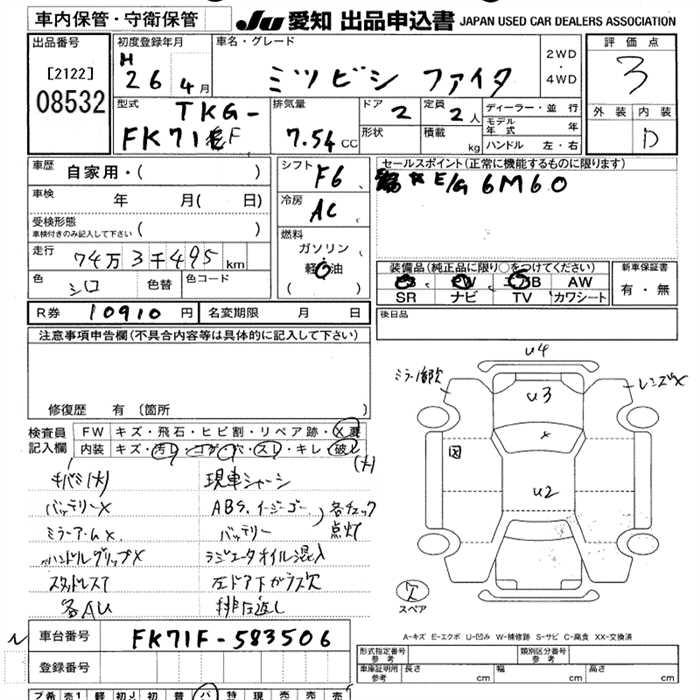 車内保管・守衛保管
JU 愛知 出品申込書 JAPAN USED CAR DEALERS ASSOCIATION
出品番号 初度登録年月 車名・グレード 2WD ・ 4WD 評価点
[2122] H 26 4月 ミツビシ ファイタ 3
08532 型式 TKG- 排気量 ドア 2 定員 2人 ディーラー・並 行 外装 内装
FK71 F 7.54 CC 形状 積載 kg モデル年式 年 D
ハンドル 左・右
車歴 自家用・( ) シフト F6 セールスポイント(正常に機能するものに限ります)
車検 年 月( 日) 冷房 AC E/G 6M60
受検形態 車検付きのみ記入して下さい ( ) 燃料
走行 74万3千495km ガソリン・軽油 ( )
装備品(純正品に限り○をつけてください) 新車保証書
色 シロ 色替 色コード PS PW エアB AW 有・無
SR ナビ TV カワシート
R券 10910円 名変期限 月 日 後日品
注意事項申告欄(不具合内容等は具体的に記入して下さい)
修復歴 有 (箇所 )
検査員記入欄 FW キズ・飛石・ヒビ割・リペア跡・X要
内装 キズ・汚れ・コゲ・穴・スレ・キレ・破れ
(大)
キバミ(大) 現車シャーシ
バッテリーX ABS、イージーゴー 各チェック
ミラーアームX バッテリー 点灯
ハンドルグリップX ラジエータオイル混入
スタッドレス7 左ドア下ガラス欠
各AU 排圧返し
U4
ミラー1部欠 U3 レンズX
X
図 U2
欠
スペア
A-キズ E-エクボ U-凹み W-補修跡 S-サビ C-腐食 XX-交換済
車台番号 FK71F-583506
登録番号
型式指定番号 参考 類別区分番号 参考
車庫証明用 参考 長さ cm 幅 cm 高さ cm